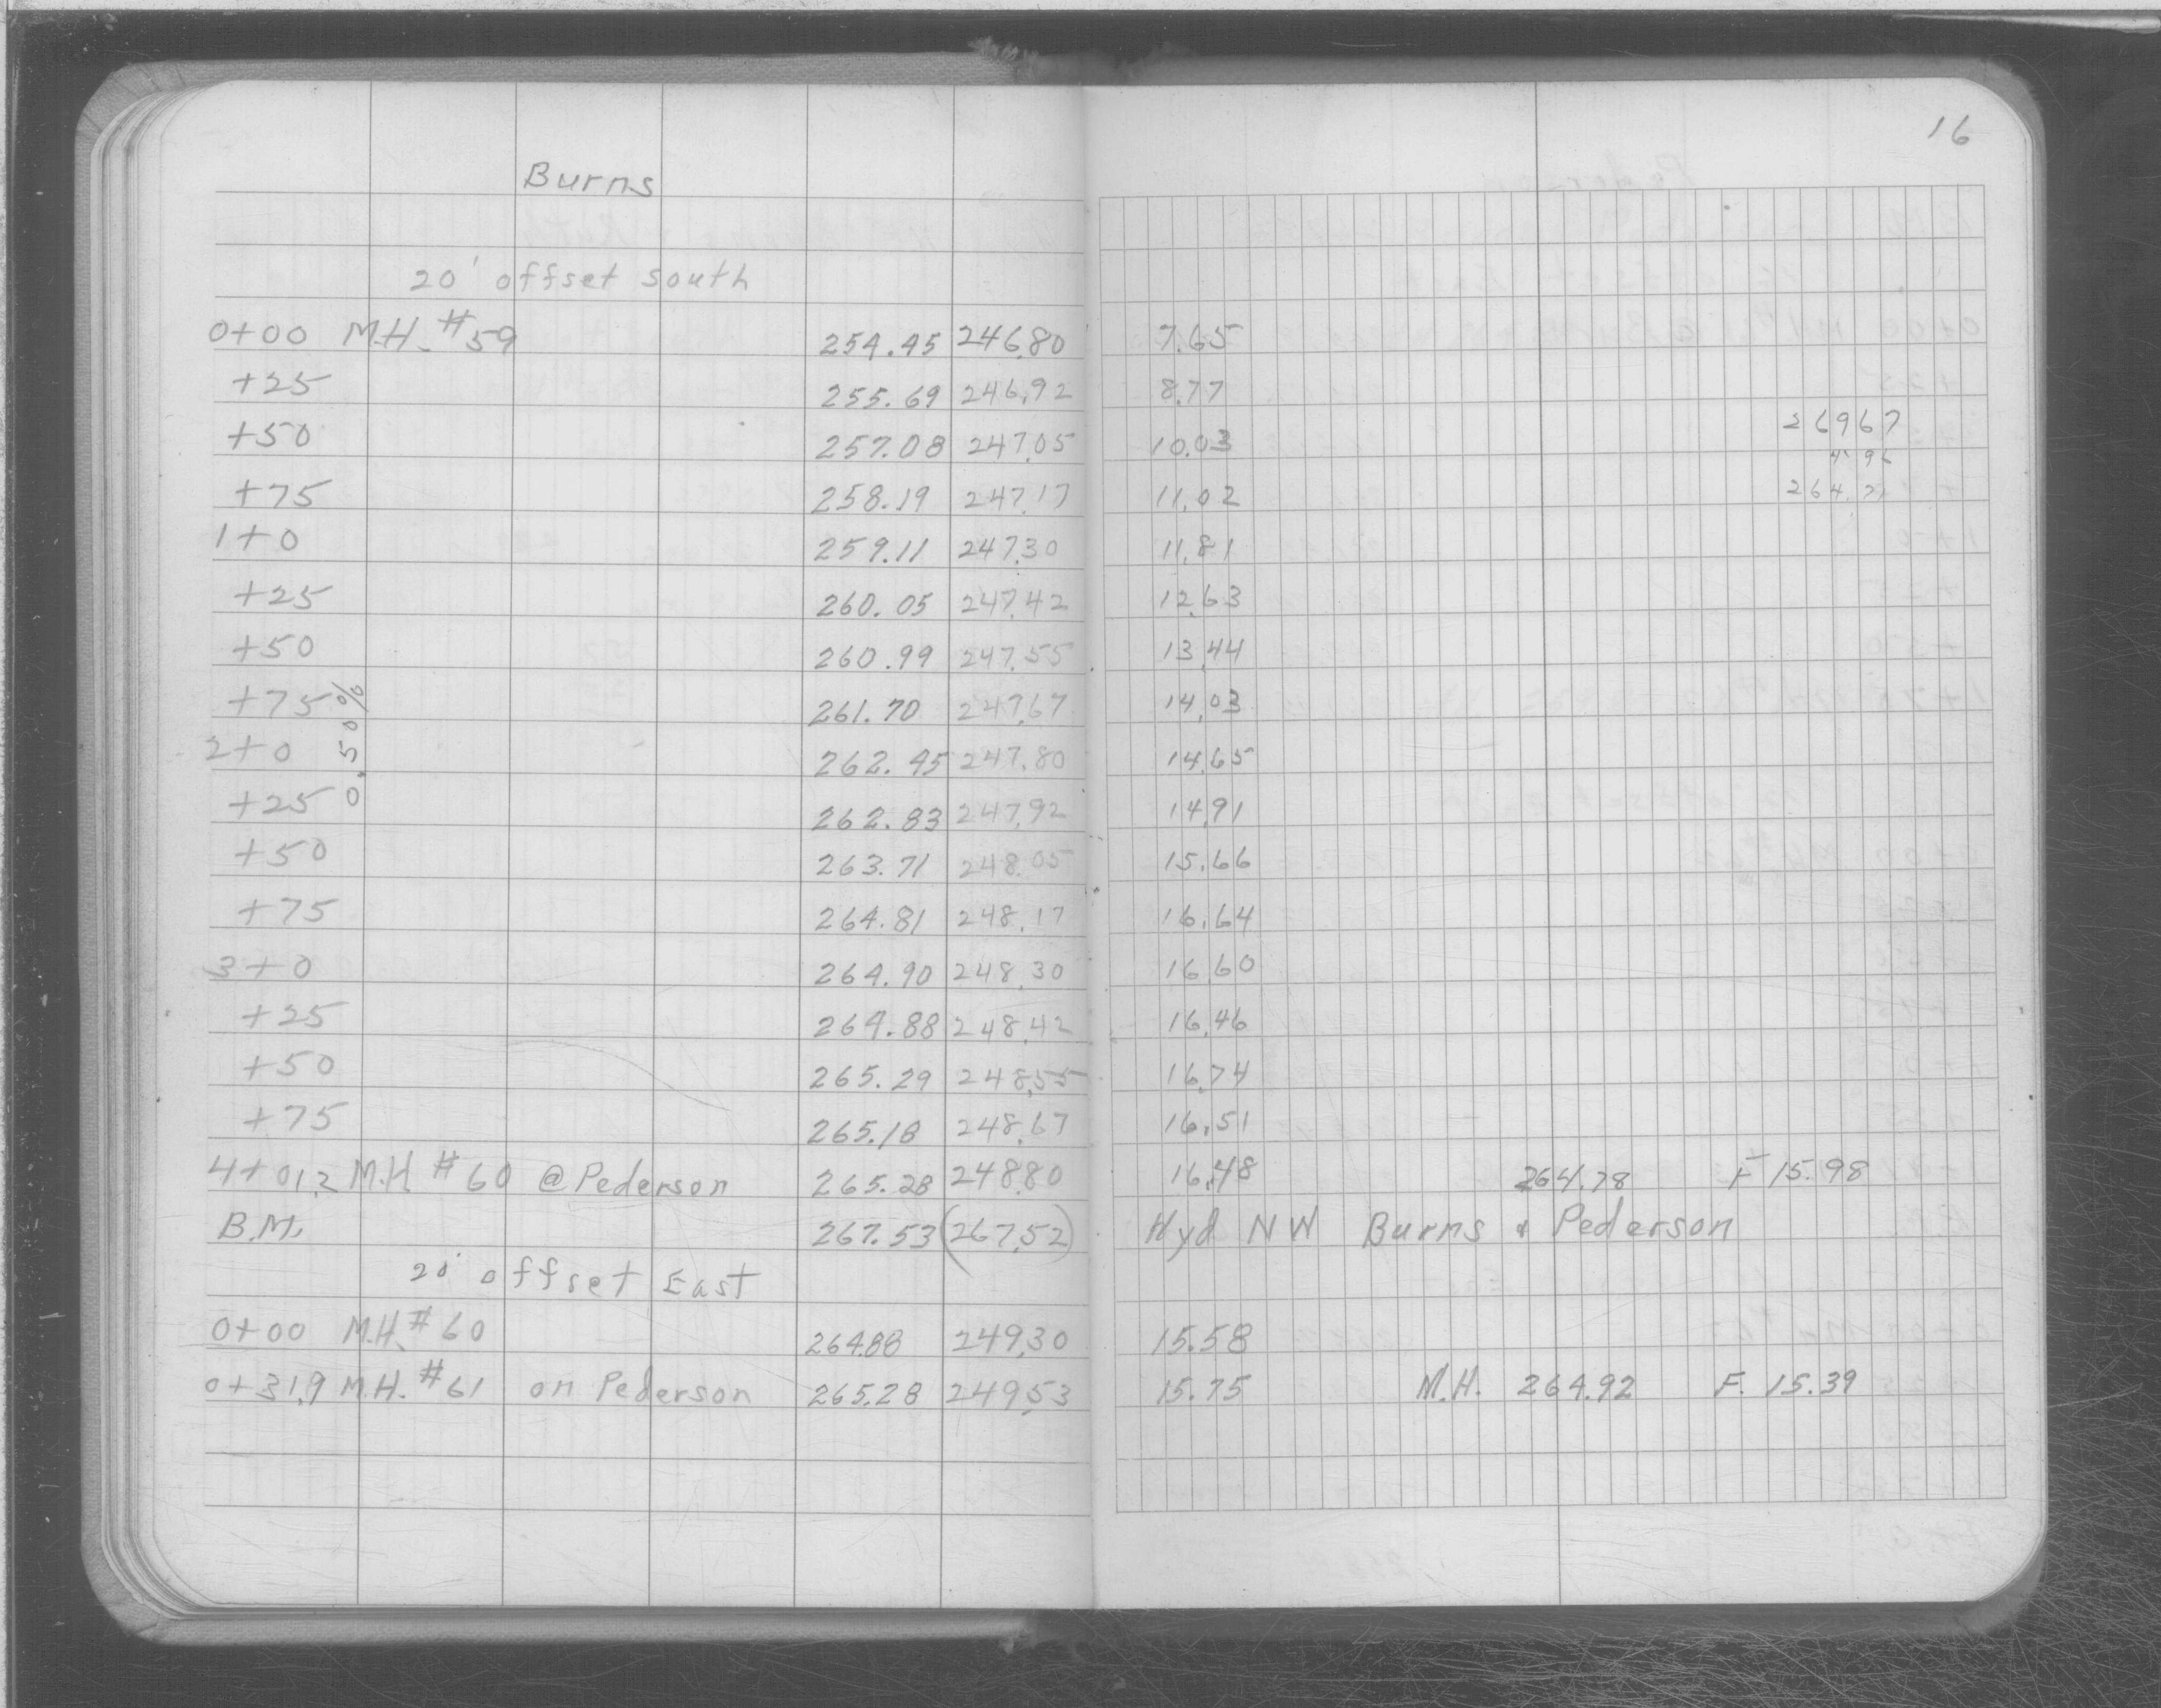 16
Burns
20' offset South
0+00 M.H. #59 254.45 246.80 7.65
+25 255.69 246.92 8.77
+50 257.08 247.05 10.03 26967
+75 258.19 247.17 11.02 264.71
1+0 259.11 247.30 11.81
+25 260.05 247.42 12.63
+50 260.99 247.55 13.44
+75 261.70 247.67 14.03
2+0 262.45 247.80 14.65
0.50%
+25 262.83 247.92 14.91
+50 263.71 248.05 15.66
+75 264.81 248.17 16.64
3+0 264.90 248.30 16.60
+25 264.88 248.42 16.46
+50 265.29 248.55 16.74
+75 265.18 248.67 16.51
4+01.2 M.H. #60 @ Pederson 265.28 248.80 16.48 264.78 F 15.98
B.M. 267.53 (267.52) Hyd NW Burns & Pederson
20' offset East
0+00 M.H. #60 264.88 249.30 15.58
0+31.9 M.H. #61 on Pederson 265.28 249.53 15.75 M.H. 264.92 F. 15.39